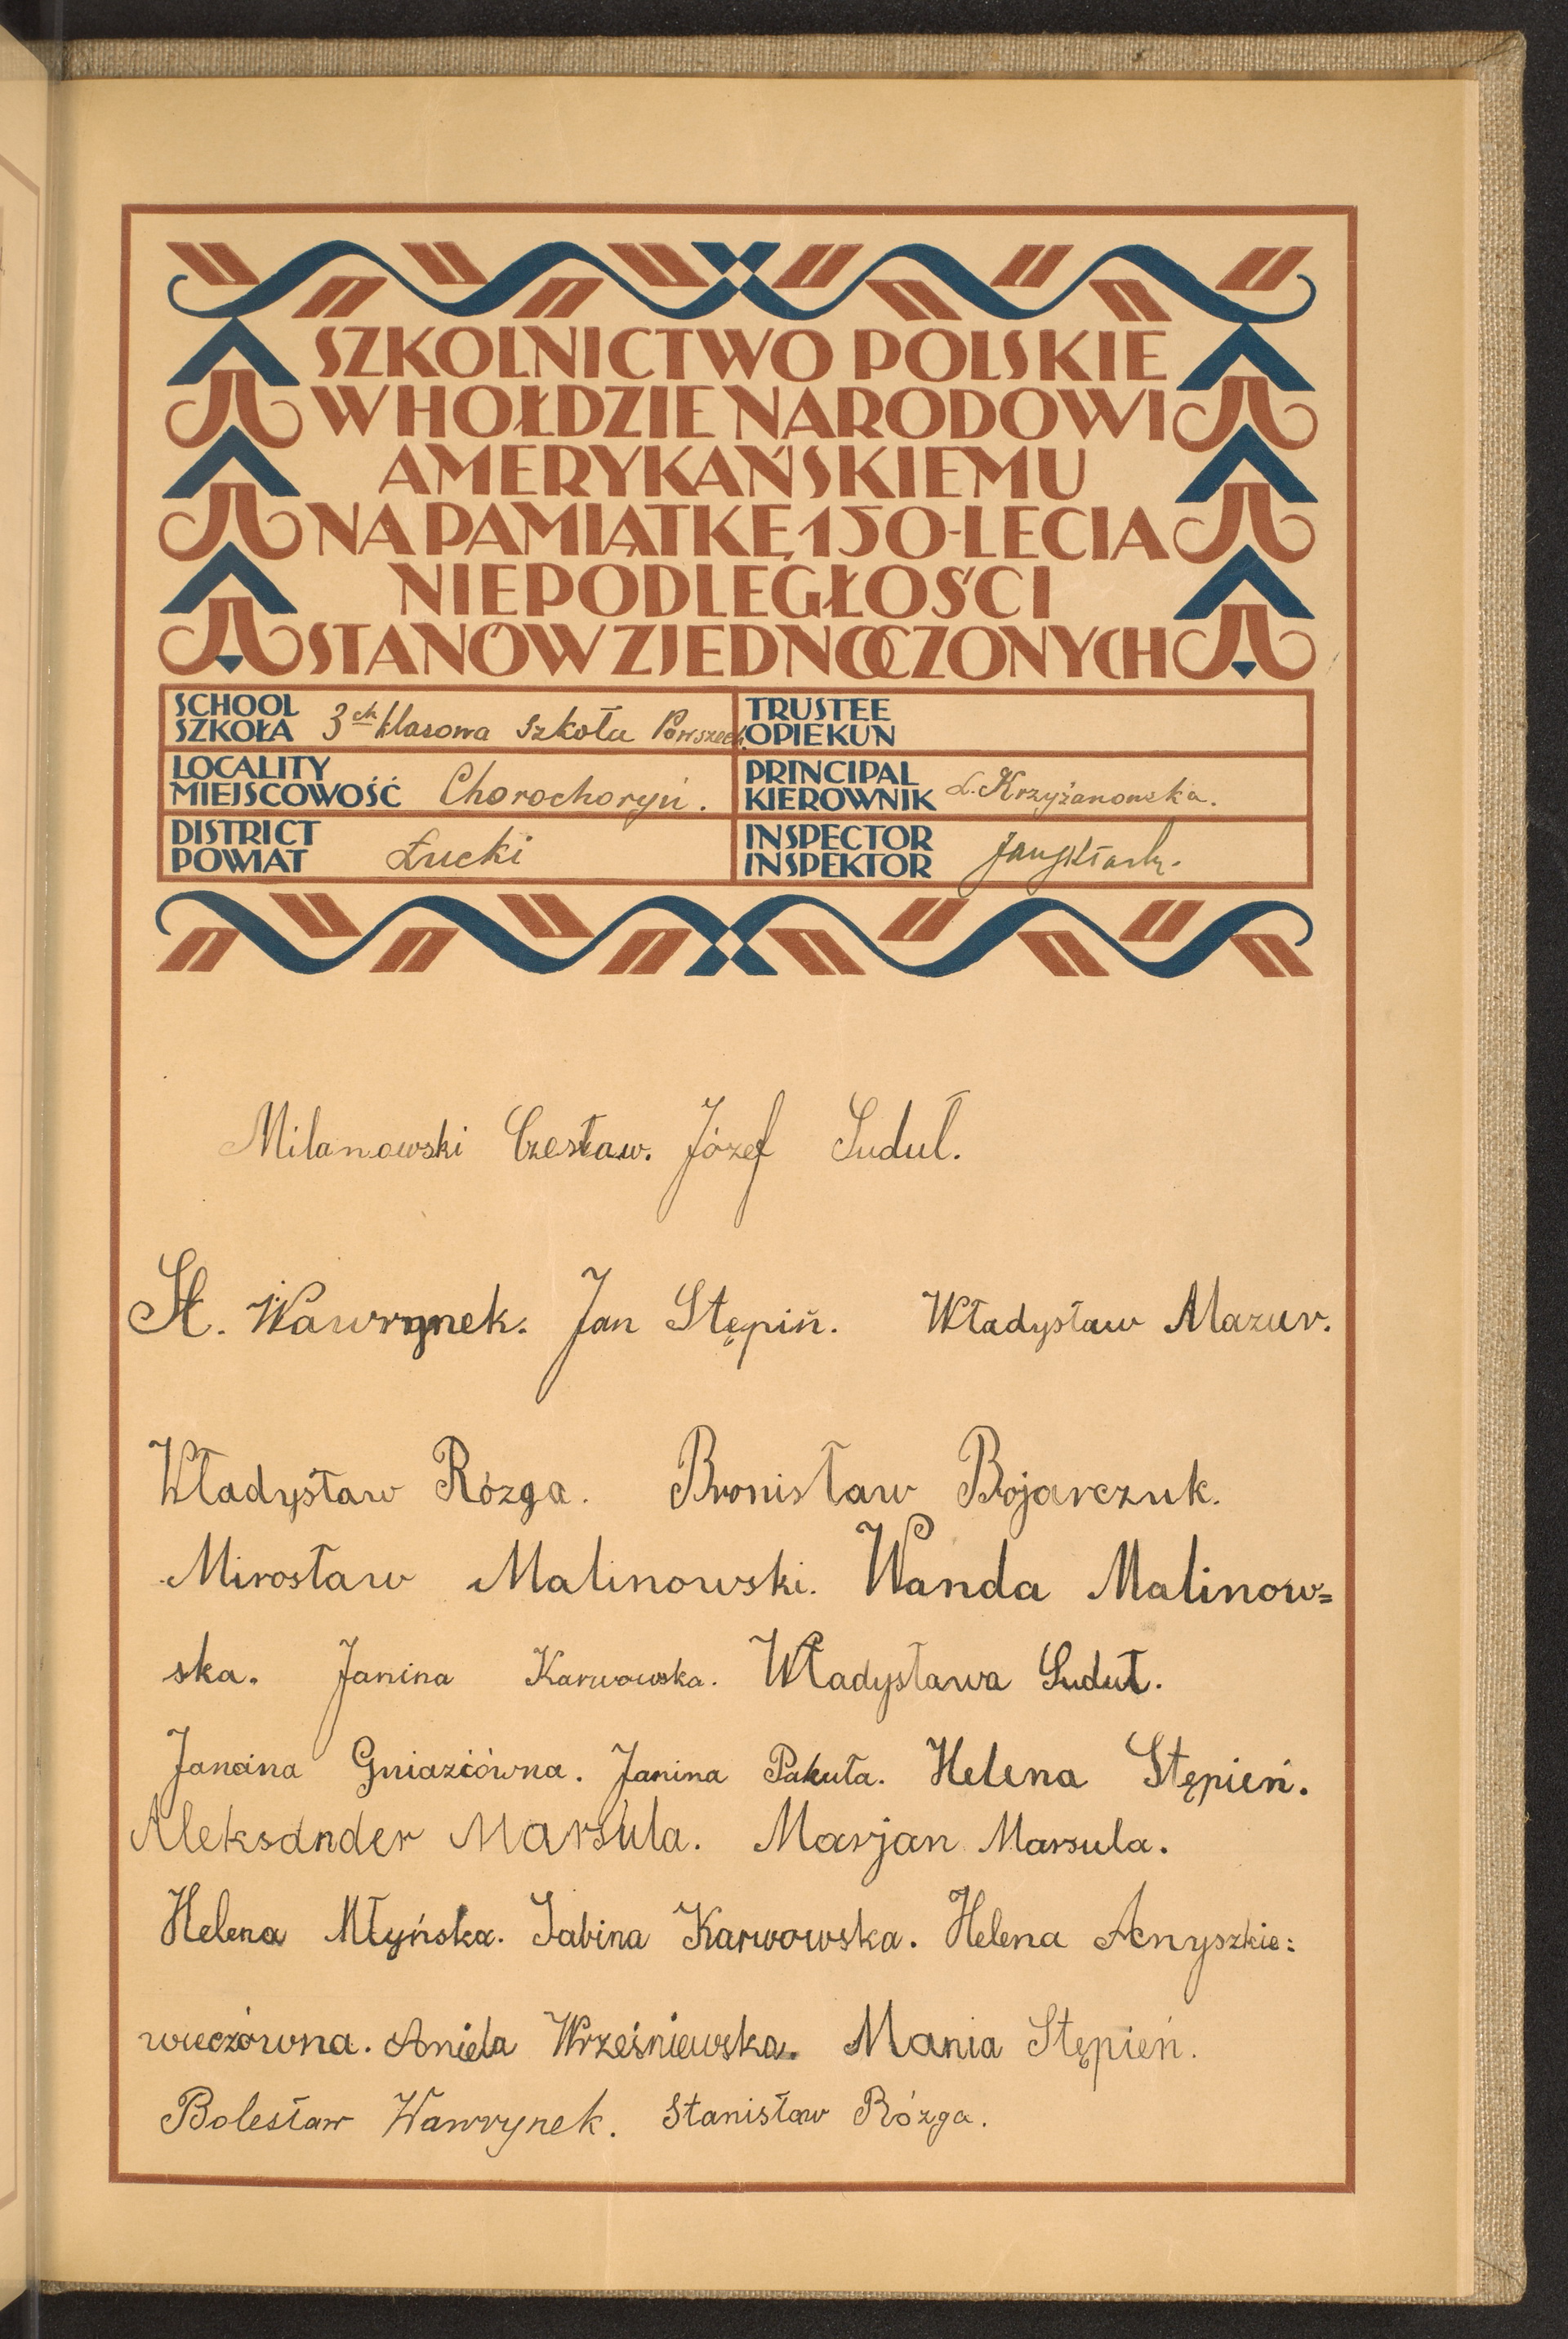 SZKOLNICTWO POLSKIE
W HOŁDZIE NARODOWI
AMERYKAŃSKIEMU
NA PAMIĄTKĘ 150-LECIA
NIEPODLEGŁOŚCI
STANÓW ZJEDNOCZONYCH
SCHOOL
SZKOŁA 3ch klasowa Szkoła Powszech.
LOCALITY
MIEJSCOWOŚĆ Chorochoryń.
DISTRICT
POWIAT Łucki
TRUSTEE
OPIEKUN
PRINCIPAL
KIEROWNIK L. Krzyżanowska.
INSPECTOR
INSPEKTOR
Milanowski Czesław. Józef Suduł.
St. Wawrynek. Jan Stępiń. Władysław Mazur.
Władysław Rózga. Bronisław Bojarczuk.
Mirosław Malinowski. Wanda Malinow=
ska. Janina Karwowska. Władysława Suduł.
Janina Gniaziówna. Janina Pakuła. Helena Stępień.
Aleksander Marsula. Marjan Marsula.
Helena Młyńska. Sabina Karwowska. Helena Anyszkie:
wiczówna. Aniela Wrześniewska. Mania Stępień.
Bolesław Wawrynek. Stanisław Rózga.